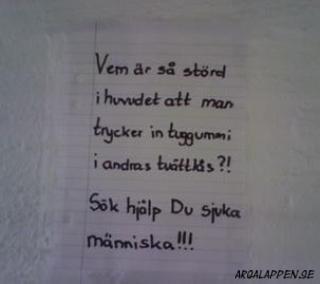 Vem är så störd
i huvudet att man
trycker in tuggummi
i andras tvättlås?!
Sök hjälp Du sjuka
människa!!!
ARGALAPPEN.SE